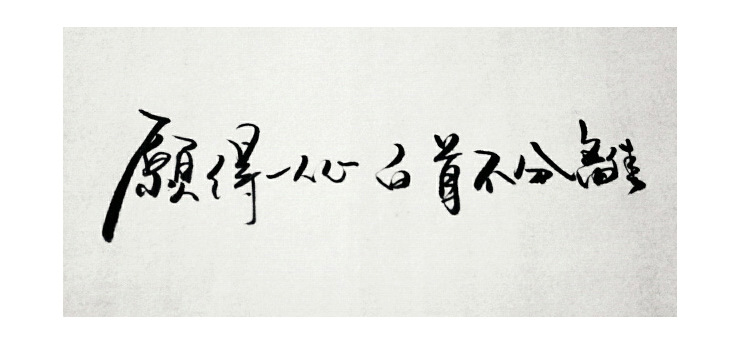 願得一人心 白首不分離